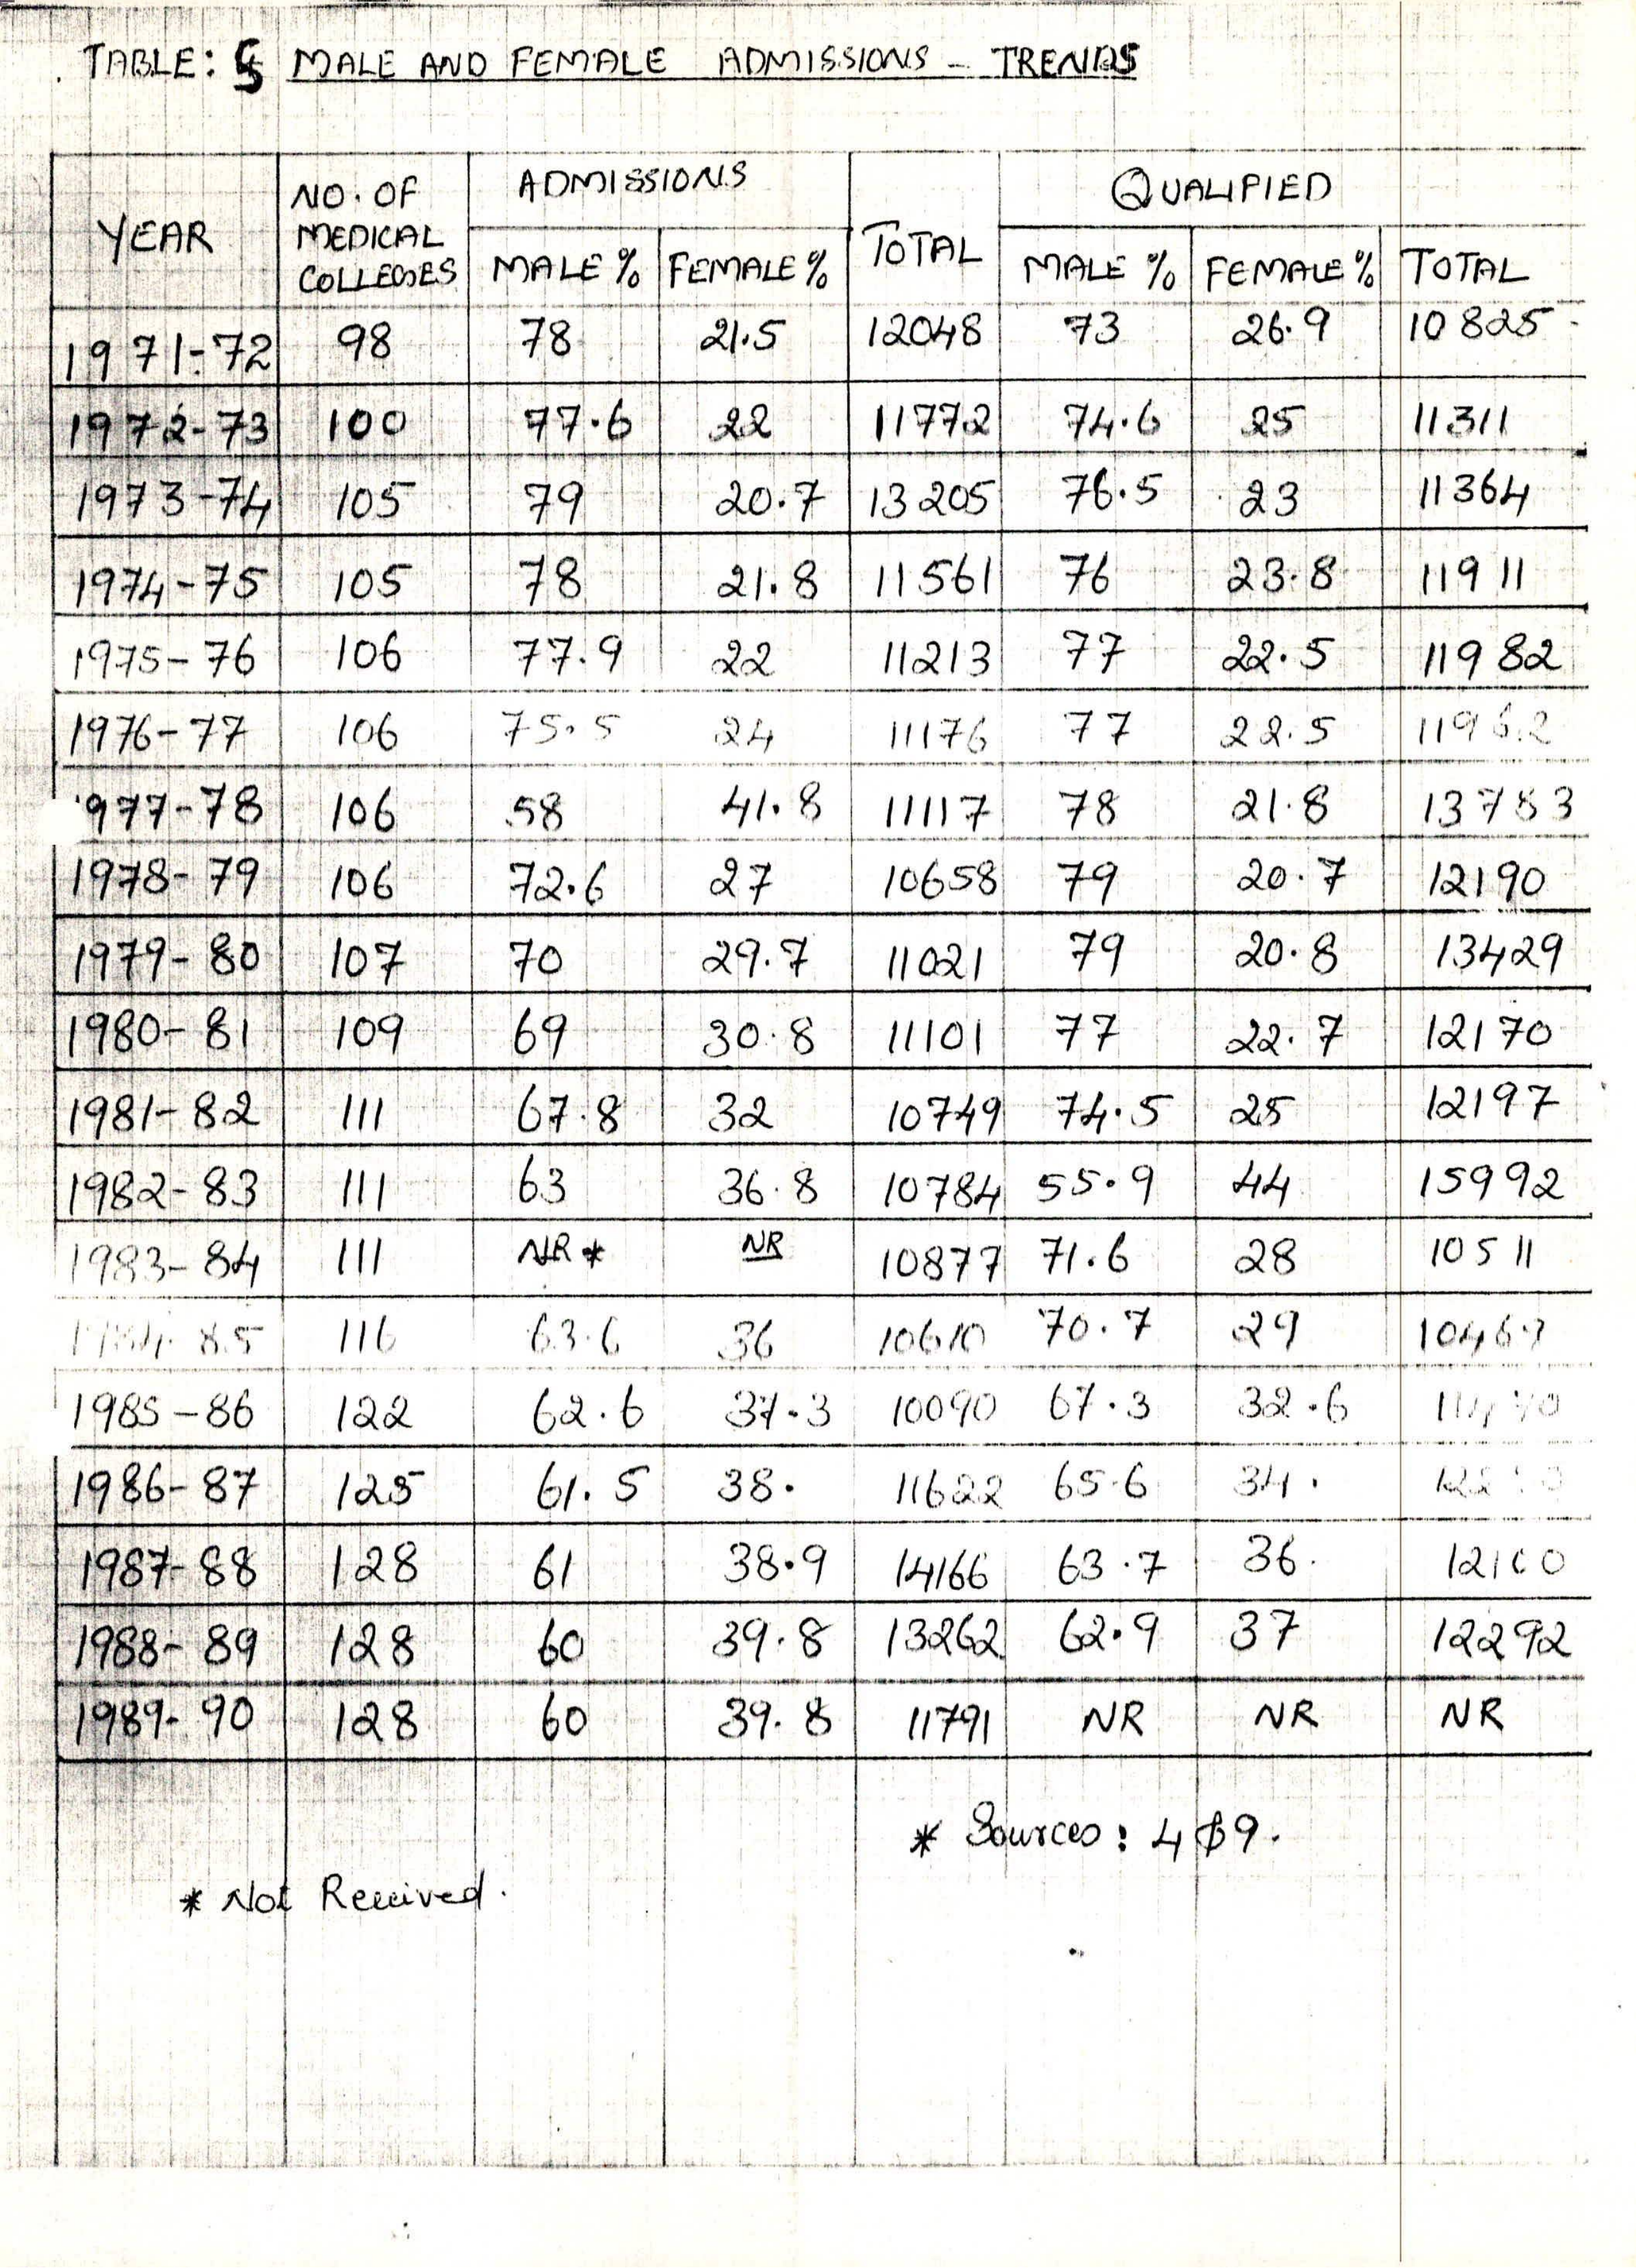 TABLE: 5 MALE AND FEMALE ADMISSIONS - TRENDS
YEAR NO. OF MEDICAL COLLEGES ADMISSIONS TOTAL QUALIFIED
MALE % FEMALE % MALE % FEMALE % TOTAL
1971-72 98 78 21.5 12048 73 26.9 10825
1972-73 100 77.6 22 11772 74.6 25 11311
1973-74 105 79 20.7 13205 76.5 23 11364
1974-75 105 78 21.8 11561 76 23.8 11911
1975-76 106 77.9 22 11213 77 22.5 11982
1976-77 106 75.5 24 11176 77 22.5 11962
977-78 106 58 41.8 11117 78 21.8 13783
1978-79 106 72.6 27 10658 79 20.7 12190
1979-80 107 70 29.7 11021 79 20.8 13429
1980-81 109 69 30.8 11101 77 22.7 12170
1981-82 111 67.8 32 10749 74.5 25 12197
1982-83 111 63 36.8 10784 55.9 44 15992
1983-84 111 NR * NR 10877 71.6 28 10511
1984-85 116 63.6 36 10610 70.7 29
1985-86 122 62.6 37.3 10090 67.3 32.6
1986-87 125 61.5 38. 11622 65.6 34.
1987-88 128 61 38.9 14166 63.7 36.
1988-89 128 60 39.8 13262 62.9 37 12292
1989-90 128 60 39.8 11791 NR NR NR
* Sources: 4 & 9.
* Not Received.